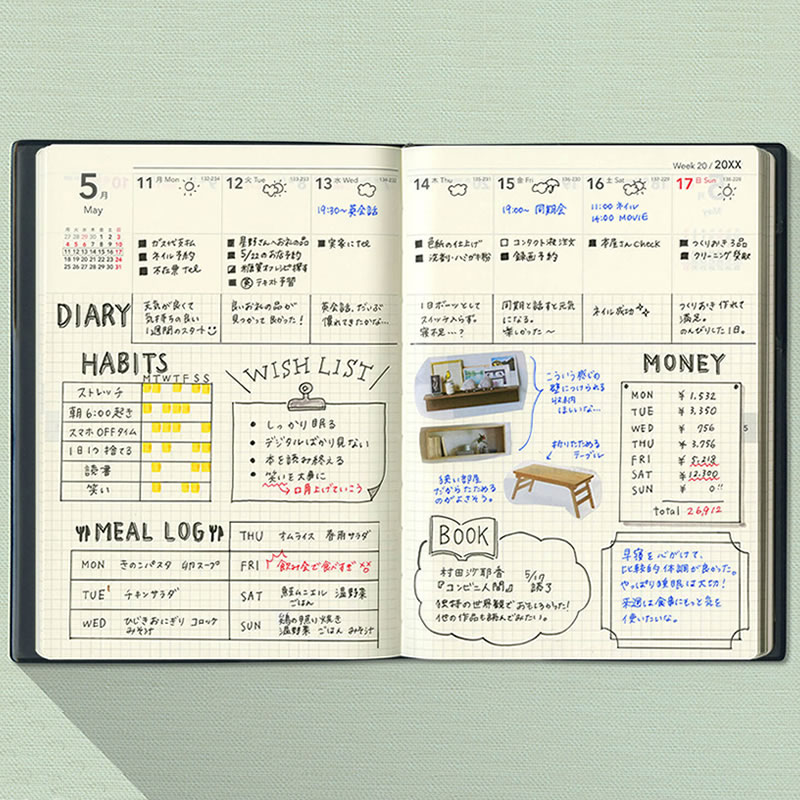 5月
May
11 月 Mon 132-234
12 火 Tue 133-233
13 水 Wed 134-232
19:30~英会話
ガス代支払
ネイル予約
不在票Tel
星野さんへお礼の品
5/22のお店予約
テキスト予習
実家にTEL
DIARY
天気が良くて
気持ちの良い
1週間のスタート
良いお礼の品が
見つかって良かった!
英会話、だいぶ
慣れてきたかな…
HABITS
MTWTFSS
ストレッチ
朝6:00起き
スマホOFFタイム
1日1つ捨てる
読書
笑い
WISH LIST
しっかり眠る
デジタルばかり見ない
本を読み終える
笑いを大事に
口角上げていこう
MEAL LOG
MON きのこパスタ 卵スープ
TUE チキンサラダ
WED ひじきおにぎり コロッケ
みそ汁
THU オムライス 春雨サラダ
FRI 飲み会で食べすぎ
SAT 鮭ムニエル 温野菜
ごはん
SUN 鶏の照り焼き
温野菜 ごはん みそ汁
Week 20 / 20XX
14 木 Thu 135-231
15 金 Fri 136-230
16 土 Sat 137-229
17 日 Sun 138-228
19:00~ 同期会
11:00 ネイル
14:00 MOVIE
色紙の仕上げ
洗剤・ハミガキ粉
コンタクト液注文
録画予約
本屋さんcheck
つくりおき3品
クリーニング受取
1日ボーッとして
スイッチ入らず。
寝不足…?
同期と話すと元気
になる。
楽しかった〜
ネイル成功
つくりおき作れて
満足。
のんびりした1日。
こういう感じの
壁につけられる
収納
ほしいな…
折りたためる
テーブル
狭い部屋
だからたためる
のがよさそう。
MONEY
MON ¥1.532
TUE ¥3.350
WED ¥ 756
THU ¥3.756
FRI ¥5.218
SAT ¥12.300
SUN ¥ 0!!
total 26,912
5
BOOK
村田沙耶香 5/17
『コンビニ人間』 読了
独特の世界観でおもしろかった!
他の作品も読んでみたい。
早寝を心がけて、
比較的体調が良かった。
やっぱり睡眠は大切!
来週は食事にもっと気を
使いたいな。